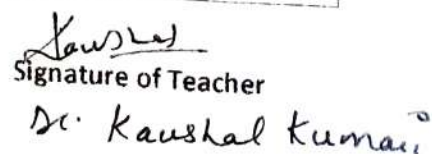 Kaushal
Signature of Teacher
Dr. Kaushal Kumari